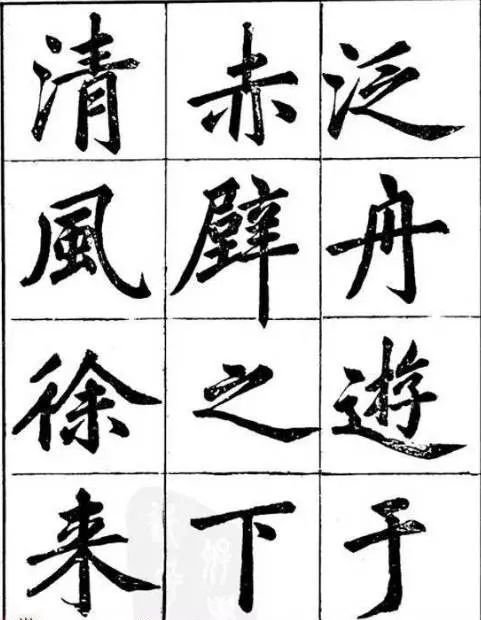 泛舟遊于
赤壁之下
清風徐来